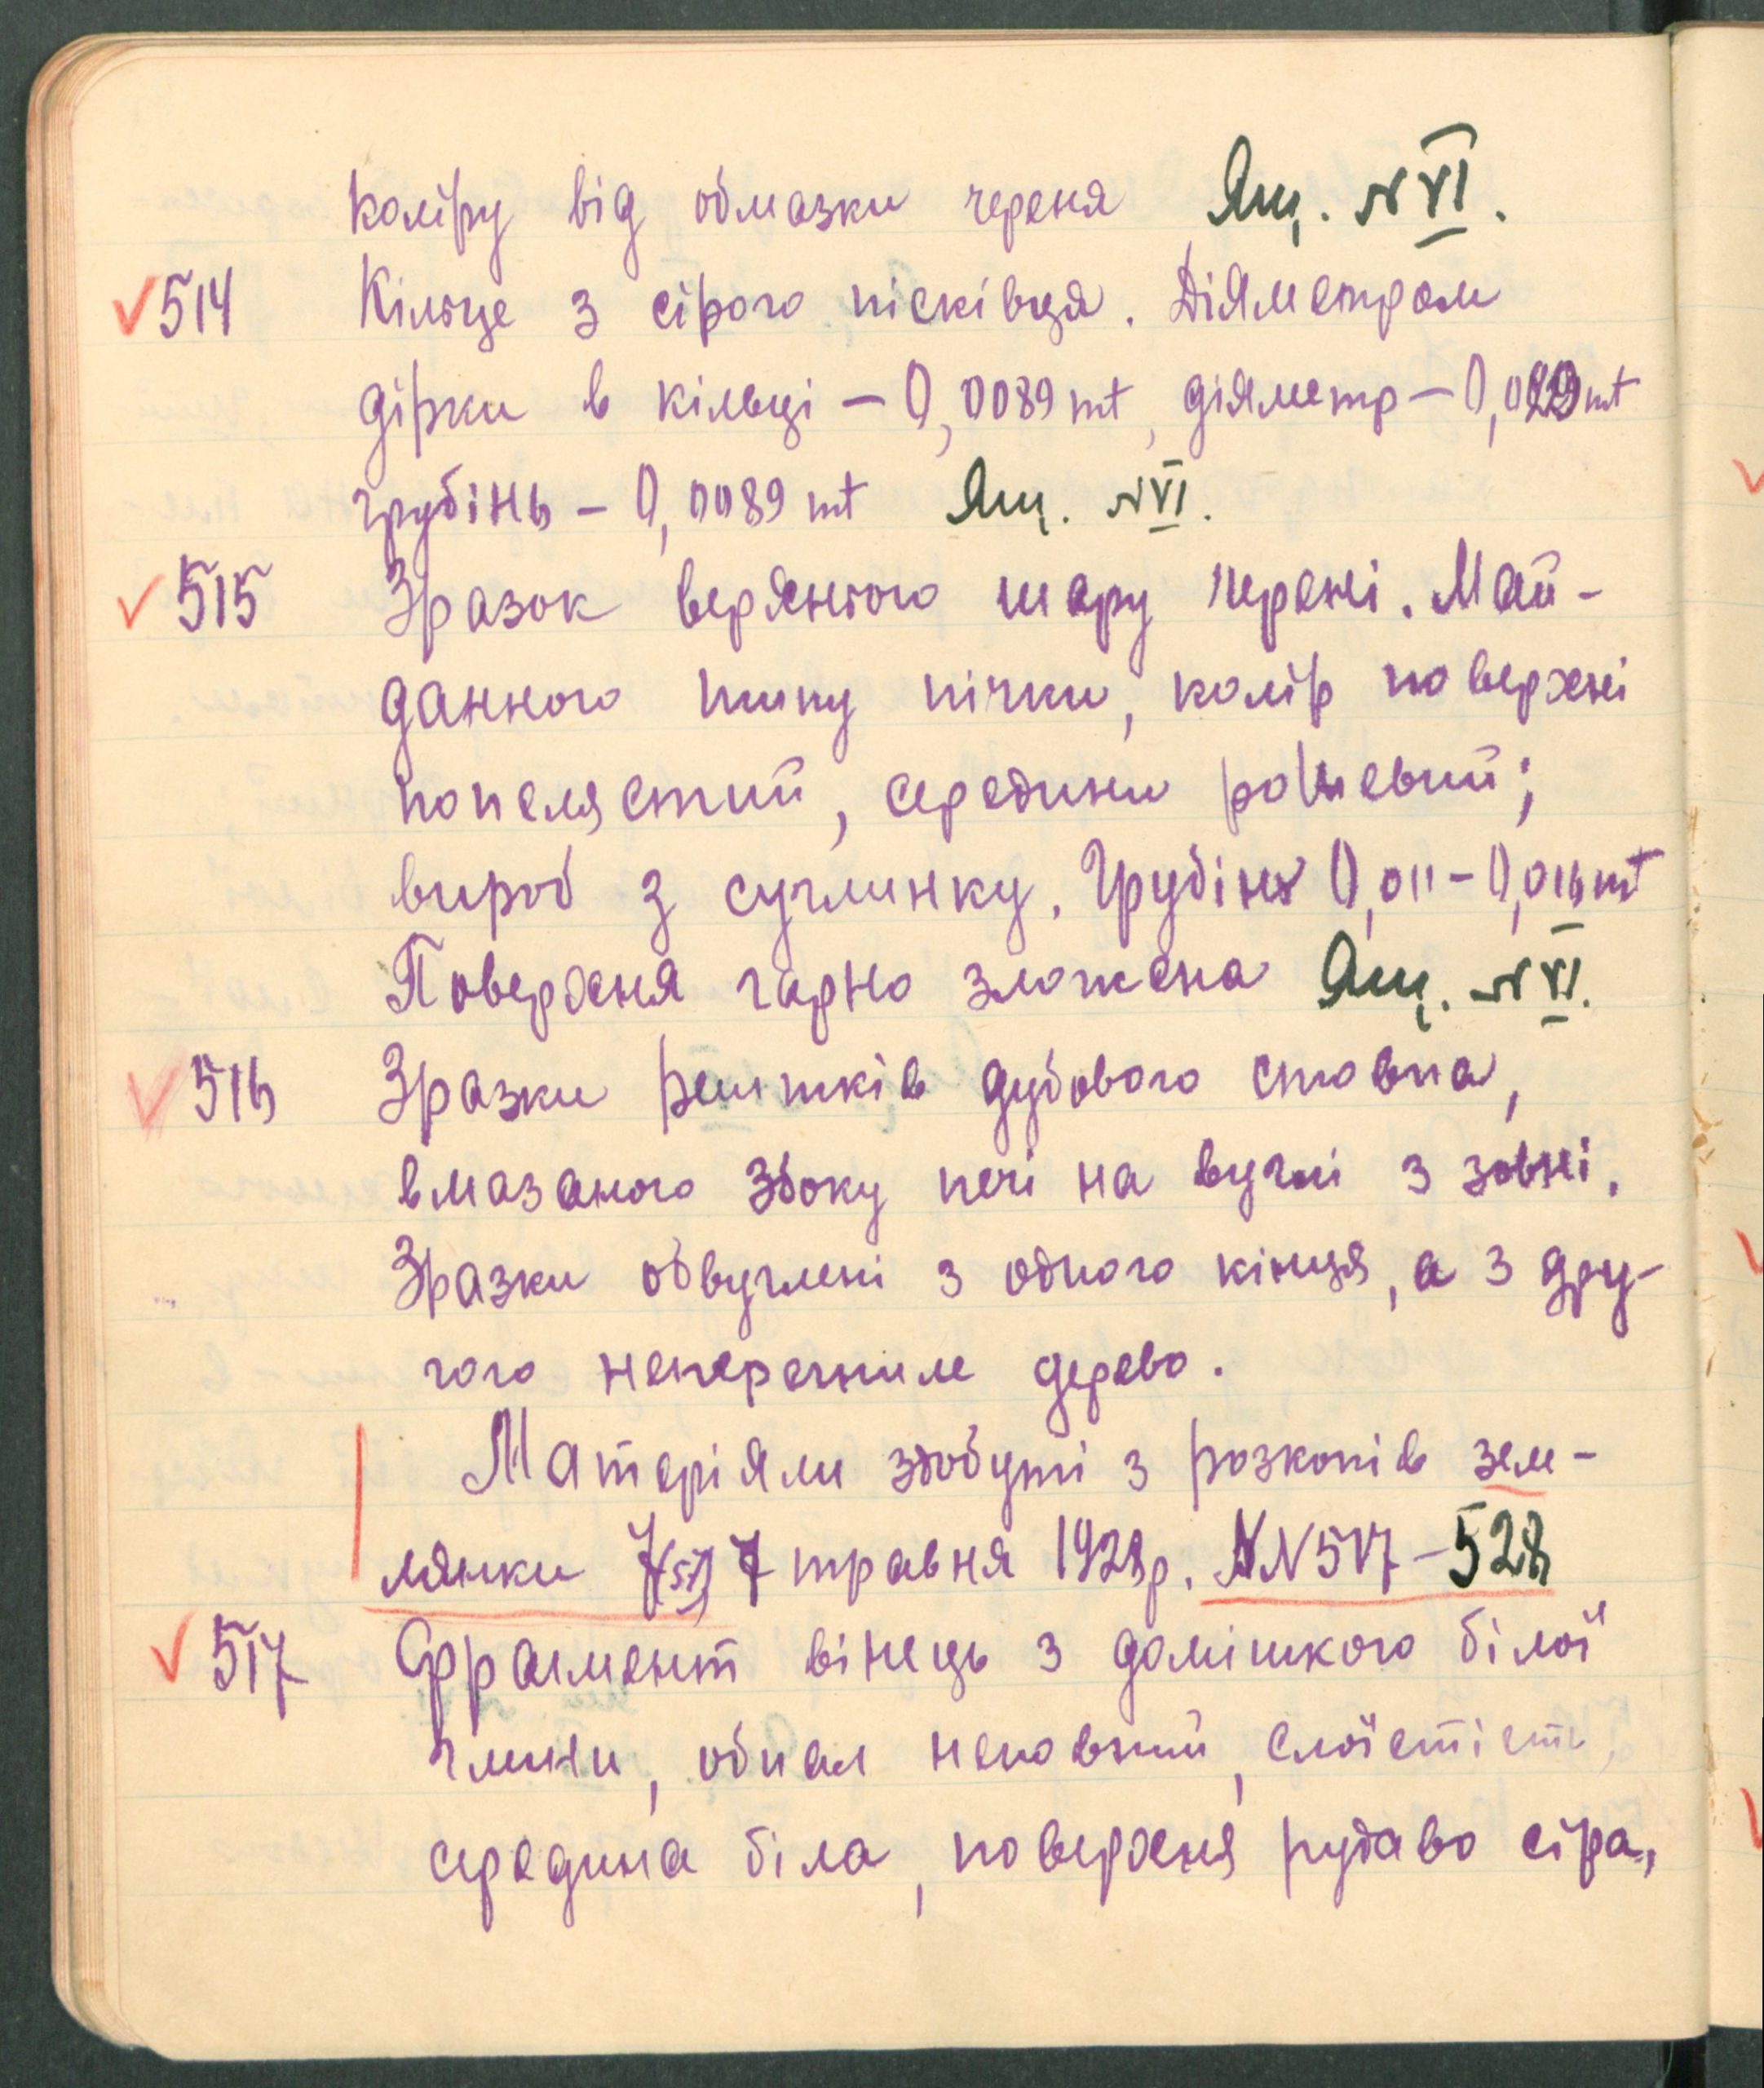 коліру від обмазки череня Ящ. N VI.
514 Кільце з сірого пісківця. Діяметром
дірки в кільці – 0,0089 mt, діяметр – 0,0 mt
грубінь – 0,0089 mt Ящ. N VI.
515 Зразок верхнього шару черені. Май-
данного типу пічки, колір поверхні
попелястий, середини рожевий;
вироб з суглинку. Грубінь 0,011 – 0,016 mt
Поверхня гарно зложена Ящ. N VI.
516 Зразки рештків дубового стовпа,
вмазаного збоку печі на вуглі з зовні.
Зразки обвуглені з одного кінця, а з дру-
гого неперегниле дерево.
Матеріяли здобуті з розкопів зем-
лянки 7 травня 1928 р. NN 517 – 528
517 Фрагмент вінець з домішкою білої
глини, обпал неповний, слоїстість,
середина біла, поверхня рудаво сіра,